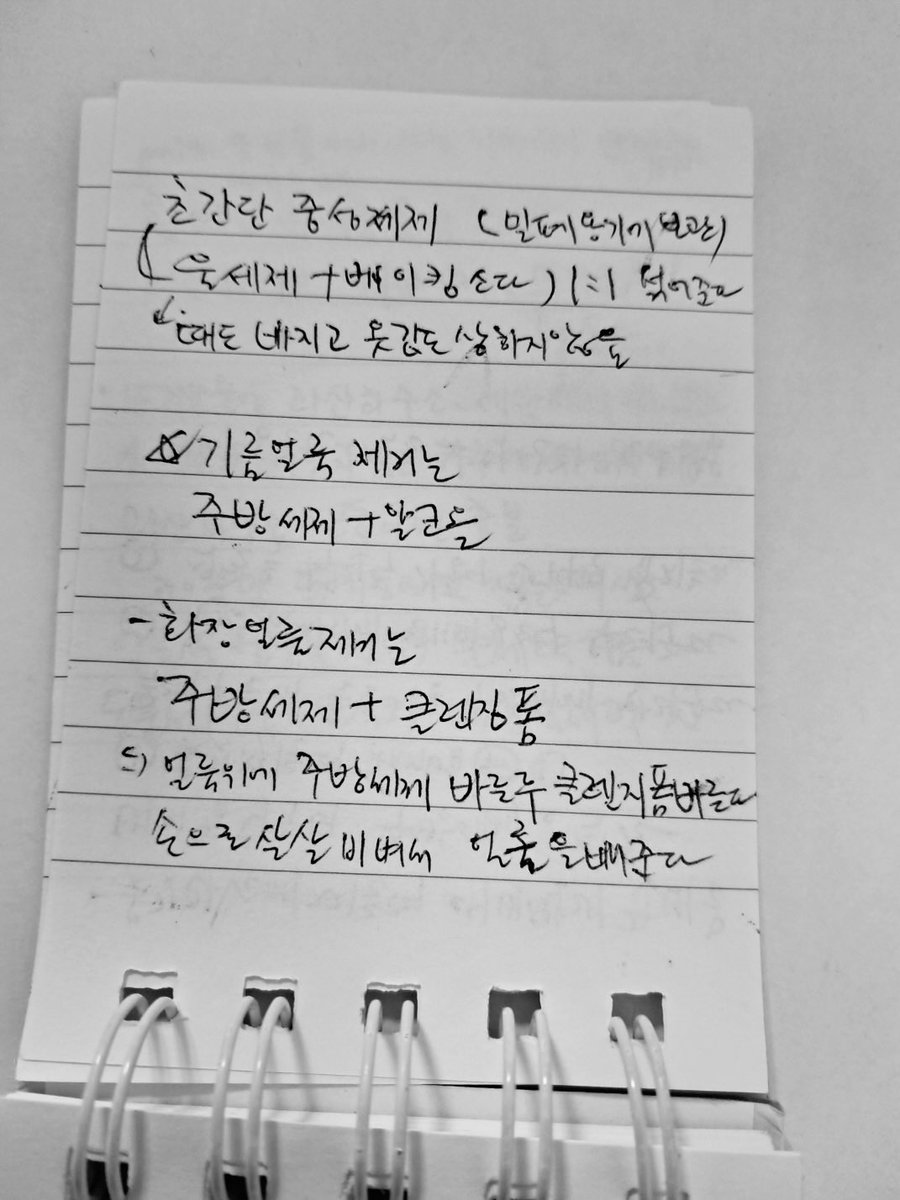 초간단 중성세제 (밀폐용기에 보관)
(울세제 + 베이킹소다) 1:1 섞어준다
때도 빠지고 옷감도 상하지않음
☆기름얼룩 제거는
주방세제 + 알코올
- 화장얼룩제거는
주방세제 + 클렌징폼
얼룩위에 주방세제 바른후 클렌징폼바른다
손으로 살살 비벼서 얼룩을빼준다